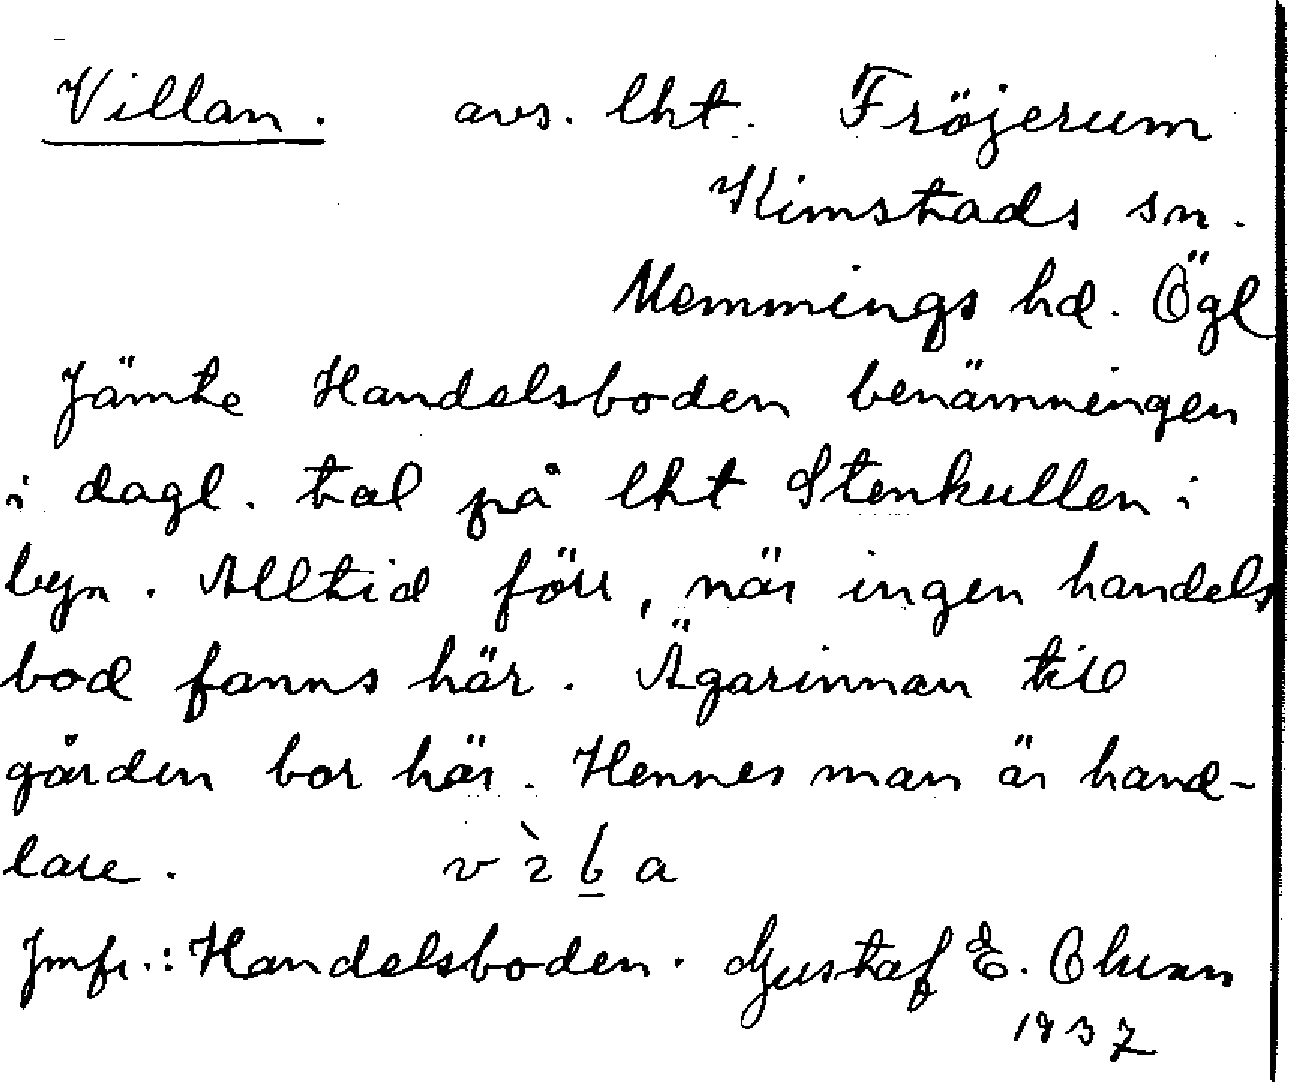 Villan. avs. lht. Fröjerum
Kimstads sn.
Memmings hd. Ögl
Jämte Handelsboden benämningen
i dagl. tal på lht Stenkullen i
byn. Alltid förr, när ingen handels
bod fanns här. Ägarinnan till
gården bor här. Hennes man är hand-
lare.
Jmfr.: Handelsboden. Gustaf E.
1937